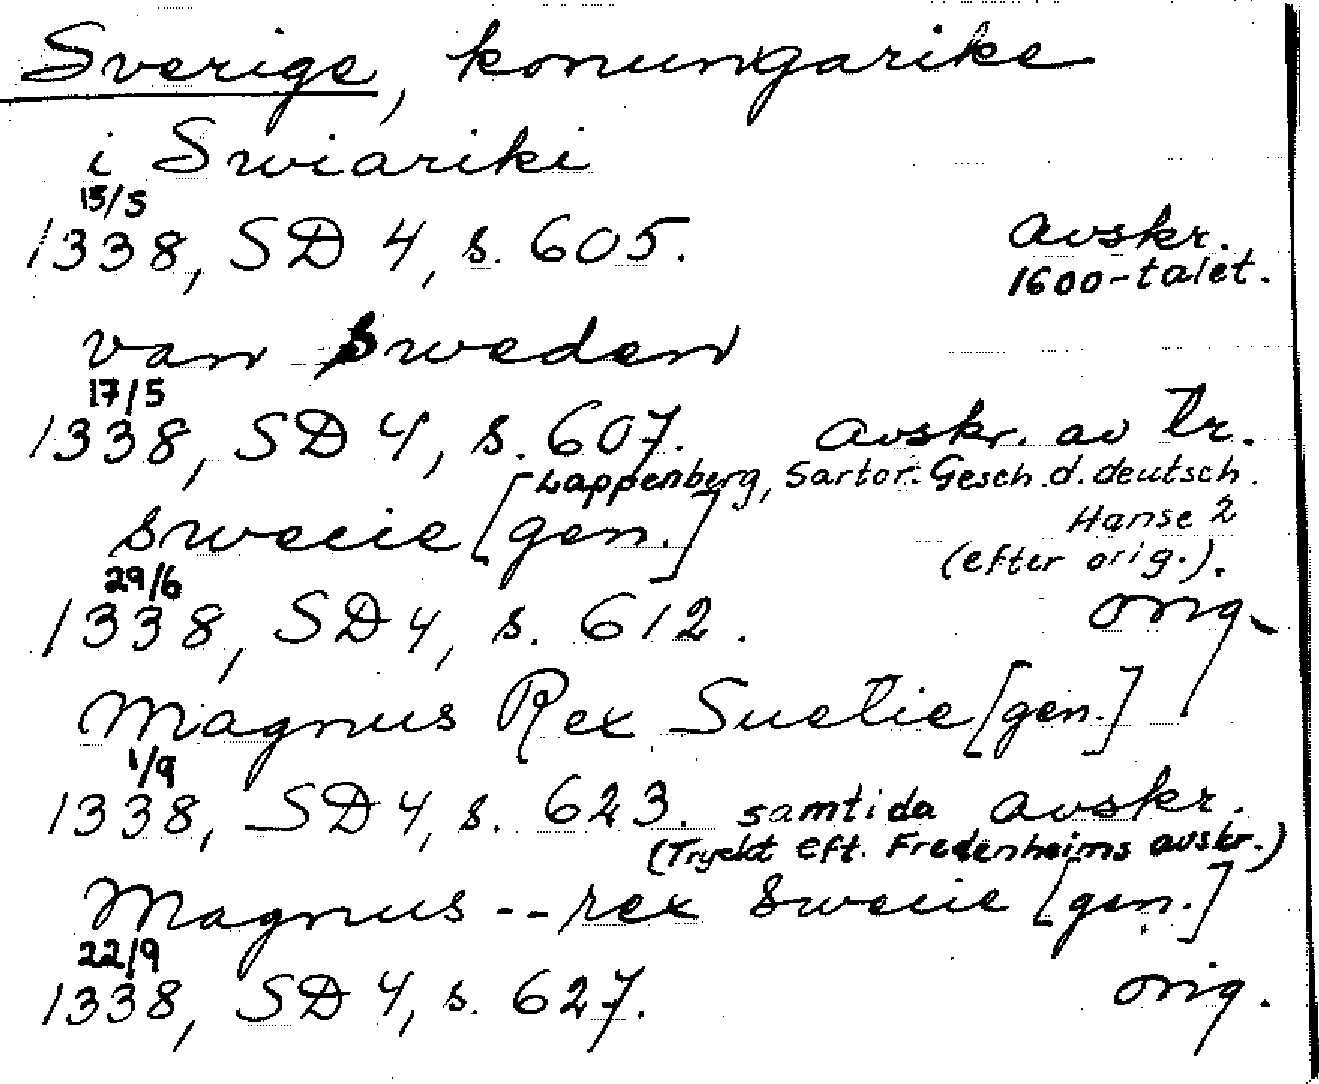 Sverige, konungarike
i Swiariki
15/5
1338, SD 4, s. 605. avskr.
1600-talet.
van Sweden
17/5
1338, SD 4, s. 607. avskr. av tr.
Lappenberg, Sartor. Gesch. d. deutsch.
Swecie [gen.] Hanse 2
(efter orig.).
29/6
1338, SD 4, s. 612. orig.
Magnus Rex Suetie [gen.]
1/9
1338, SD 4, s. 623. samtida avskr.
(Tryckt eft. Fredenheims avskr.)
Magnus -- rex Swecie [gen.]
22/9
1338, SD 4, s. 627. orig.